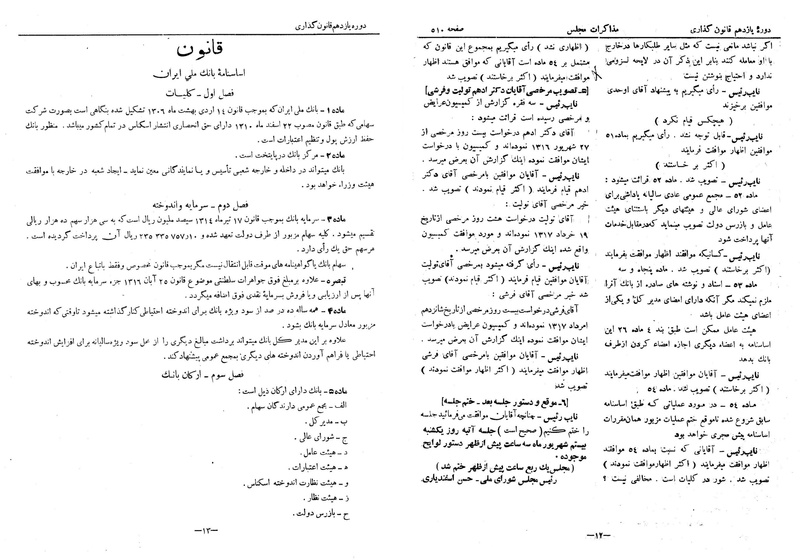 دورهٔ یازدهم قانون گذاری
مذاکرات مجلس
صفحه ۵۱۰
اگر نباشد مانعی نیست که مثل سایر طلبکارها درخارج
با او معامله کنند بنابر این ذکر آن در لایحه لزومی
ندارد و احتیاج بنوشتن نیست
نایب رئیس - رأی میگیریم به پیشنهاد آقای اوحدی
موافقین برخیزند
( هیچکس قیام نکرد )
نایب رئیس- قابل توجه نشد . رأی میگیریم بماده۵۱
موافقین اظهار موافقت فرمایند
( اکثر بر خاستند )
نایب رئیس - تصویب شد . ماده ۵۲ قرائت میشود :
ماده ۵۲ - مجمع عمومی عادی سالیانه پاداشی برای
اعضای شورای عالی و هیئتهای دیگر باستثنای هیئت
عامل و بازرس دولت تصویب مینماید که درمقابل خدمات
آنها پرداخت شود
نایب رئیس-کسانیکه موافقند اظهار موافقت بفرمایند
( اکثر برخاستند ) تصویب شد . ماده پنجاه و سه
ماده ۵۳ - اسناد و نوشته های صادره از بانك آنرا
ملزم نمیکند مگر آنکه دارای امضای مدیر کل و یکی از
اعضای هیئت عامل باشد
هیئت عامل ممکن است طبق بند ٤ ماده ۲۶ این
اساسنامه به اعضای دیگری اجازه امضاء کردن ازطرف
بانك بدهد
نایب رئیس - آقایان موافقین اظهار موافقت میفرمایند
( اکثر برخاستند ) تصویب شد . ماده ٥٤
ماده ٥٤ - در مورد عملیاتی که طبق اساسنامه
سابق شروع شده تاموقع ختم عملیات مزبور همان مقررات
اساسنامه پیش مجری خواهد بود
نایب رئیس - آقایانی که نسبت بماده ٥٤ موافقند
اظهار موافقت میفرمایند ( اکثر اظهار موافقت نمودند )
تصویب شد . شور در کلیات است . مخالفی نیست ؟
( اظهاری نشد ) رأی میگیریم بمجموع این قانون که
مشتمل بر ٥٤ ماده است آقایانی که موافق هستند اظهار
موافقت میفرمایند ( اکثر برخاستند ) تصویب شد
[۵ـ تصویب مرخصی آقایان دکتر ادهم تولیت وفرشی]
نایب رئیس - سه فقره گزارش از کمیسیون عرایض
و مرخصی رسیده است قرائت میشود :
آقای دکتر ادهم درخواست بیست روز مرخصی از
۲۷ شهریور ۱۳۱۶ نموده‌اند و کمیسیون با درخواست
ایشان موافقت نموده اینك گزارش آن بعرض میرسد .
نایب رئیس - آقایان موافقین بامرخصی آقای دکتر
ادهم قیام فرمایند ( اکثر قیام نمودند ) تصویب شد .
خبر مرخصی آقای تولیت :
آقای تولیت درخواست هشت روز مرخصی از تاریخ
۱۹ خرداد ۱۳۱۷ نموده‌اند و مورد موافقت کمیسیون
واقع شده اینك گزارش آن بعرض میرسد .
نایب رئیس - رأی گرفته میشود بمرخصی آقای تولیت
موافقین قیام فرمایند ( اکثر قیام نمودند ) تصویب
شد خبر مرخصی آقای فرشی :
آقای فرشی درخواست بیست روز مرخصی از تاریخ شانزدهم
امرداد ۱۳۱۷ نموده‌اند و کمیسیون عرایض بادرخواست
ایشان موافقت نموده اینك گزارش آن بعرض میرسد .
نایب رئیس - آقایان موافقین بامرخصی آقای فرشی
اظهار موافقت میفرمایند ( اکثر اظهار موافقت نمودند )
تصویب شد .
[۶ـ موقع و دستور جلسه بعد - ختم جلسه]
نایب رئیس - چنانچه آقایان موافقت میفرمائید جلسه
را ختم کنیم ( صحیح است ) جلسه آتیه روز یکشنبه
بیستم شهریور ماه سه ساعت پیش از ظهر دستور لوایح
موجوده .
( مجلس یك ربع ساعت پیش از ظهر ختم شد )
رئیس مجلس شورای ملی - حسن اسفندیاری
—۱۲—
دوره یازدهم قانون گذاری
قانون
اساسنامۀ بانك ملی ایران
فصل اول - کلیات
ماده۱ - بانك ملی ایران که بموجب قانون ١٤ اردی بهشت ماه ۱۳۰۶ تشکیل شده بنگاهی است بصورت شرکت
سهامی که طبق قانون مصوب ۲۲ اسفند ماه ۱۳۱۰ دارای حق انحصاری انتشار اسکناس در تمام کشور میباشد . منظور بانك
حفظ ارزش پول وتنظیم اعتبارات است .
ماده۲ - مرکز بانك در پایتخت است .
بانك میتواند در داخله و خارجه شعبی تأسیس و یا نمایندگانی معین نماید - ایجاد شعبه در خارجه با موافقت
هیئت وزراء خواهد بود .
فصل دوم - سرمایه و اندوخته
ماده۳ - سرمایه بانك بموجب قانون ۱۷ تیرماه ۱۳۱٤ سیصد ملیون ریال است که به سی هزار سهم ده هزار ریالی
تقسیم میشود . کلیه سهام مزبور از طرف دولت تعهد شده و ۲۳۵٫۳۳۵٫۷۵۷/۱۰ ریال آن پرداخت گردیده است .
هرسهم حق یك رأی دارد .
سهام بانك یا گواهینامه های موقت قابل انتقال نیست مگر بموجب قانون مخصوص وفقط باتباع ایران .
تبصره - علاوه برمبلغ فوق جواهرات سلطنتی موضوع قانون ۲۵ آبان ۱۳۱۶ جزء سرمایه بانك محسوب و بهای
آنها پس از ارزیابی و یا فروش بسرمایۀ نقدی فوق اضافه میگردد .
ماده٤ - همه ساله ده در صد از سود ویژه بانك برای اندوخته احتیاطی کنار گذاشته میشود تاوقتی که اندوخته
مزبور معادل سرمایه بانك بشود .
علاوه بر این مدیر کل بانك میتواند برداشت مبالغ دیگری را از محل سود ویژه سالیانه برای افزایش اندوخته
احتیاطی یا فراهم آوردن اندوخته های دیگری بمجمع عمومی پیشنهاد کند .
فصل سوم - ارکان بانك
ماده۵ - بانك دارای ارکان ذیل است :
الف - مجمع عمومی دارندگان سهام .
ب - مدیر کل .
ج - شورای عالی .
د - هیئت عامل .
ه - هیئت اعتبارات .
و - هیئت نظارت اندوخته اسکناس .
ز - هیئت نظار .
ح - بازرس دولت .
—۱۳—